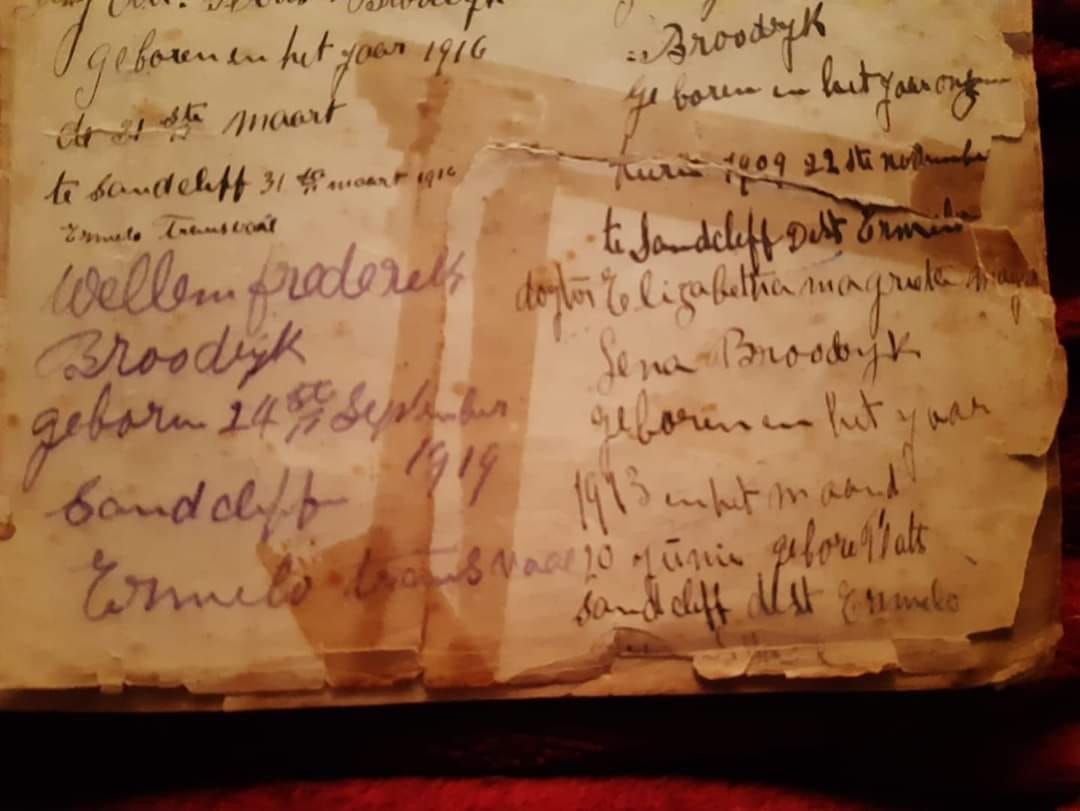 Broodryk
geboren en het yaar 1916
de 31 ste maart
te Sandcliff 31 ste maart 1916
Ermelo Transvaal
Wellem frederik
Broodryk
geboren 24 ste September
1919
Sandcliff
Ermelo transvaal
Broodryk
geboren in het yaar
1909 22 ste november
te Sandcliff Dist Ermelo
dogtor Elizabetha magrieta
Sena Broodryk
geboren en het yaar
1913 en het maand
20 Junie gebore Plats
Sandcliff dist Ermelo